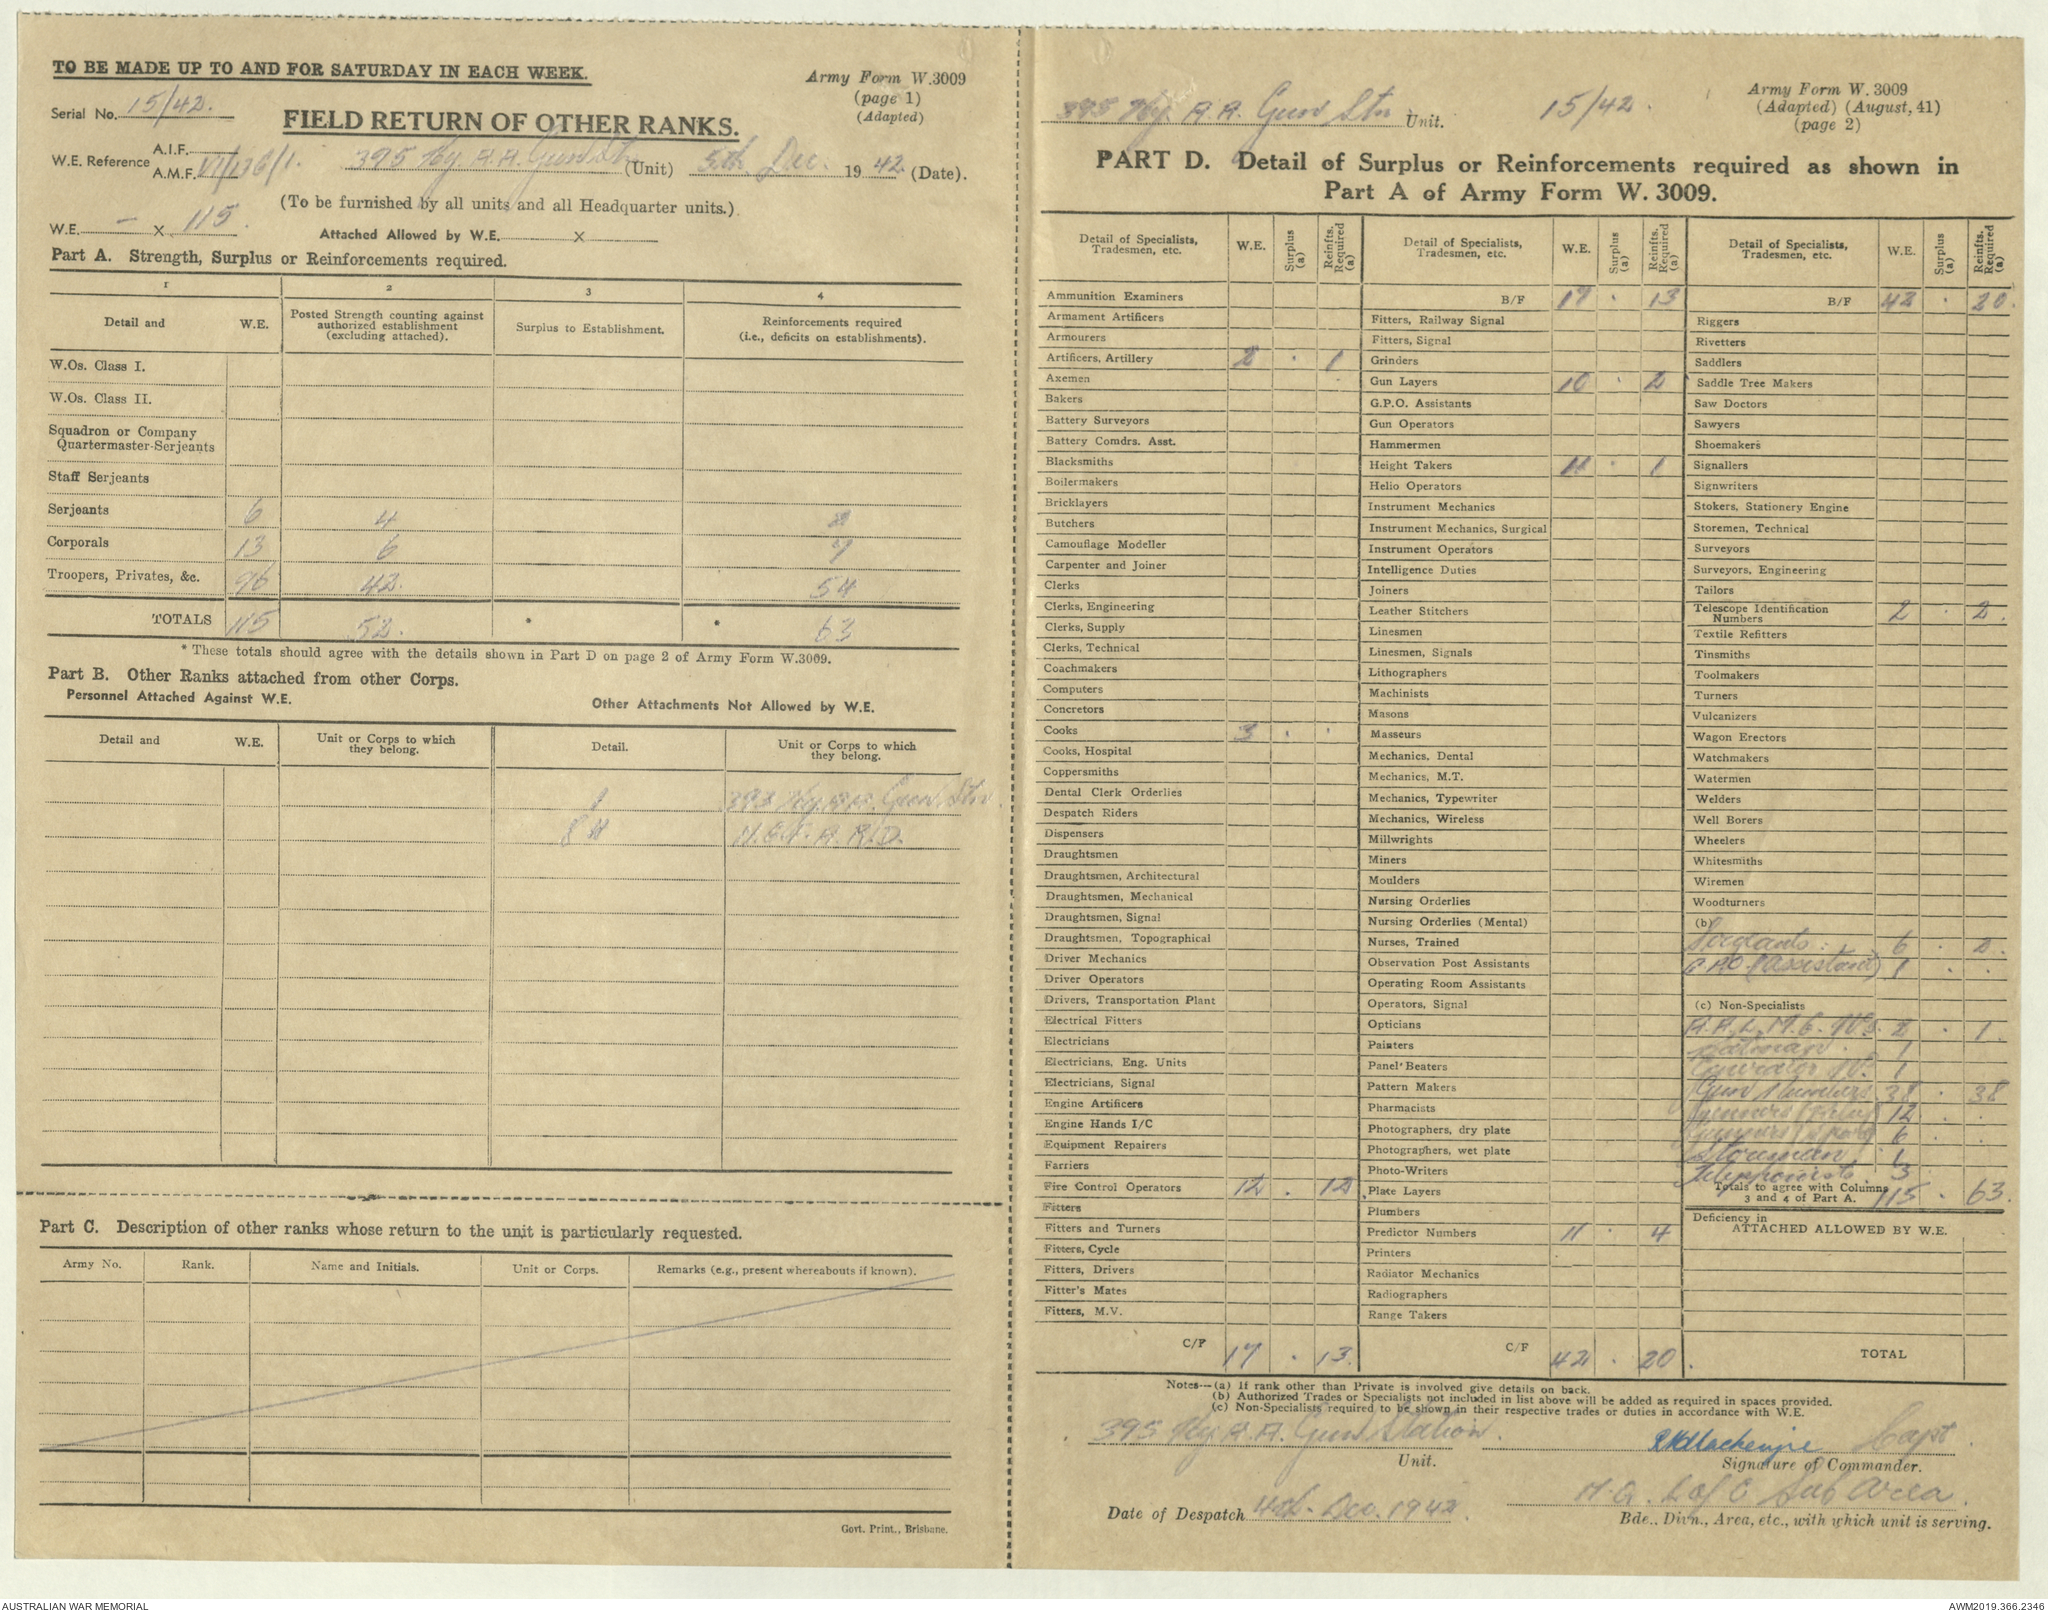 TO BE MADE UP TO AND FOR SATURDAY IN EACH WEEK.
Army Form W.3009
(page 1)
(Adapted)
Serial No. 15/42.
FIELD RETURN OF OTHER RANKS.
W.E. Reference A.I.F.
A.M.F. VI/136/1.
395 Hy. A.A. Gun Stn (Unit) 5th Dec. 1942. (Date).
(To be furnished by all units and all Headquarter units.)
W.E. — x 115.
Attached Allowed by W.E. x
Part A. Strength, Surplus or Reinforcements required.
1 2 3 4
Detail and W.E. Posted Strength counting against authorized establishment (excluding attached). Surplus to Establishment. Reinforcements required (i.e., deficits on establishments).
W.Os. Class I.
W.Os. Class II.
Squadron or Company
Quartermaster-Serjeants
Staff Serjeants
Serjeants 6 4 2
Corporals 13 6 7
Troopers, Privates, &c. 96 42. 54
TOTALS 115 52. * * 63
* These totals should agree with the details shown in Part D on page 2 of Army Form W.3009.
Part B. Other Ranks attached from other Corps.
Personnel Attached Against W.E. Other Attachments Not Allowed by W.E.
Detail and W.E. Unit or Corps to which they belong. Detail. Unit or Corps to which they belong.
1 393 Hy. A.A. Gun Stn.
84 N.G.F. A.R.D.
Part C. Description of other ranks whose return to the unit is particularly requested.
Army No. Rank. Name and Initials. Unit or Corps. Remarks (e.g., present whereabouts if known).
Govt. Print., Brisbane.
395 Hy. A.A. Gun Stn Unit. 15/42.
Army Form W. 3009
(Adapted) (August, 41)
(page 2)
PART D. Detail of Surplus or Reinforcements required as shown in
Part A of Army Form W. 3009.
Detail of Specialists, Tradesmen, etc. W.E. Surplus (a) Reinfts. Required (a)
Ammunition Examiners
Armament Artificers
Armourers
Artificers, Artillery 2 . 1
Axemen
Bakers
Battery Surveyors
Battery Comdrs. Asst.
Blacksmiths
Boilermakers
Bricklayers
Butchers
Camouflage Modeller
Carpenter and Joiner
Clerks
Clerks, Engineering
Clerks, Supply
Clerks, Technical
Coachmakers
Computers
Concretors
Cooks 3 . .
Cooks, Hospital
Coppersmiths
Dental Clerk Orderlies
Despatch Riders
Dispensers
Draughtsmen
Draughtsmen, Architectural
Draughtsmen, Mechanical
Draughtsmen, Signal
Draughtsmen, Topographical
Driver Mechanics
Driver Operators
Drivers, Transportation Plant
Electrical Fitters
Electricians
Electricians, Eng. Units
Electricians, Signal
Engine Artificers
Engine Hands I/C
Equipment Repairers
Farriers
Fire Control Operators 12 . 12
Fitters
Fitters and Turners
Fitters, Cycle
Fitters, Drivers
Fitter's Mates
Fitters, M.V.
C/F 17 . 13.
Detail of Specialists, Tradesmen, etc. W.E. Surplus (a) Reinfts. Required (a)
B/F 17 . 13
Fitters, Railway Signal
Fitters, Signal
Grinders
Gun Layers 10 . 2
G.P.O. Assistants
Gun Operators
Hammermen
Height Takers 4 . 1
Helio Operators
Instrument Mechanics
Instrument Mechanics, Surgical
Instrument Operators
Intelligence Duties
Joiners
Leather Stitchers
Linesmen
Linesmen, Signals
Lithographers
Machinists
Masons
Masseurs
Mechanics, Dental
Mechanics, M.T.
Mechanics, Typewriter
Mechanics, Wireless
Millwrights
Miners
Moulders
Nursing Orderlies
Nursing Orderlies (Mental)
Nurses, Trained
Observation Post Assistants
Operating Room Assistants
Operators, Signal
Opticians
Painters
Panel Beaters
Pattern Makers
Pharmacists
Photographers, dry plate
Photographers, wet plate
Photo-Writers
Plate Layers
Plumbers
Predictor Numbers 11 . 4
Printers
Radiator Mechanics
Radiographers
Range Takers
C/F 42 . 20.
Detail of Specialists, Tradesmen, etc. W.E. Surplus (a) Reinfts. Required (a)
B/F 42 . 20.
Riggers
Rivetters
Saddlers
Saddle Tree Makers
Saw Doctors
Sawyers
Shoemakers
Signallers
Signwriters
Stokers, Stationery Engine
Storemen, Technical
Surveyors
Surveyors, Engineering
Tailors
Telescope Identification
Numbers 2 . 2.
Textile Refitters
Tinsmiths
Toolmakers
Turners
Vulcanizers
Wagon Erectors
Watchmakers
Watermen
Welders
Well Borers
Wheelers
Whitesmiths
Wiremen
Woodturners
(b)
Sergeants. 6 . 2.
(Assistant) 1 . .
(c) Non-Specialists
A.A.L.M.G. Nos. 2 . 1.
Batman. 1
Generator No. 1
Gun Numbers 38 . 38
Gunners 12 . .
Gunners 6 . .
Storeman. 1
Telephonists. 3
Totals to agree with Columns
3 and 4 of Part A. 115 . 63.
Deficiency in
ATTACHED ALLOWED BY W.E.
TOTAL
Notes—(a) If rank other than Private is involved give details on back.
(b) Authorized Trades or Specialists not included in list above will be added as required in spaces provided.
(c) Non-Specialists required to be shown in their respective trades or duties in accordance with W.E.
395 Hy. A.A. Gun Station.
Unit.
Mackenzie Capt.
Signature of Commander.
Date of Despatch 4th. Dec. 1942.
H.Q. L of C Sub Area.
Bde., Divn., Area, etc., with which unit is serving.
AUSTRALIAN WAR MEMORIAL
AWM2019.366.2346